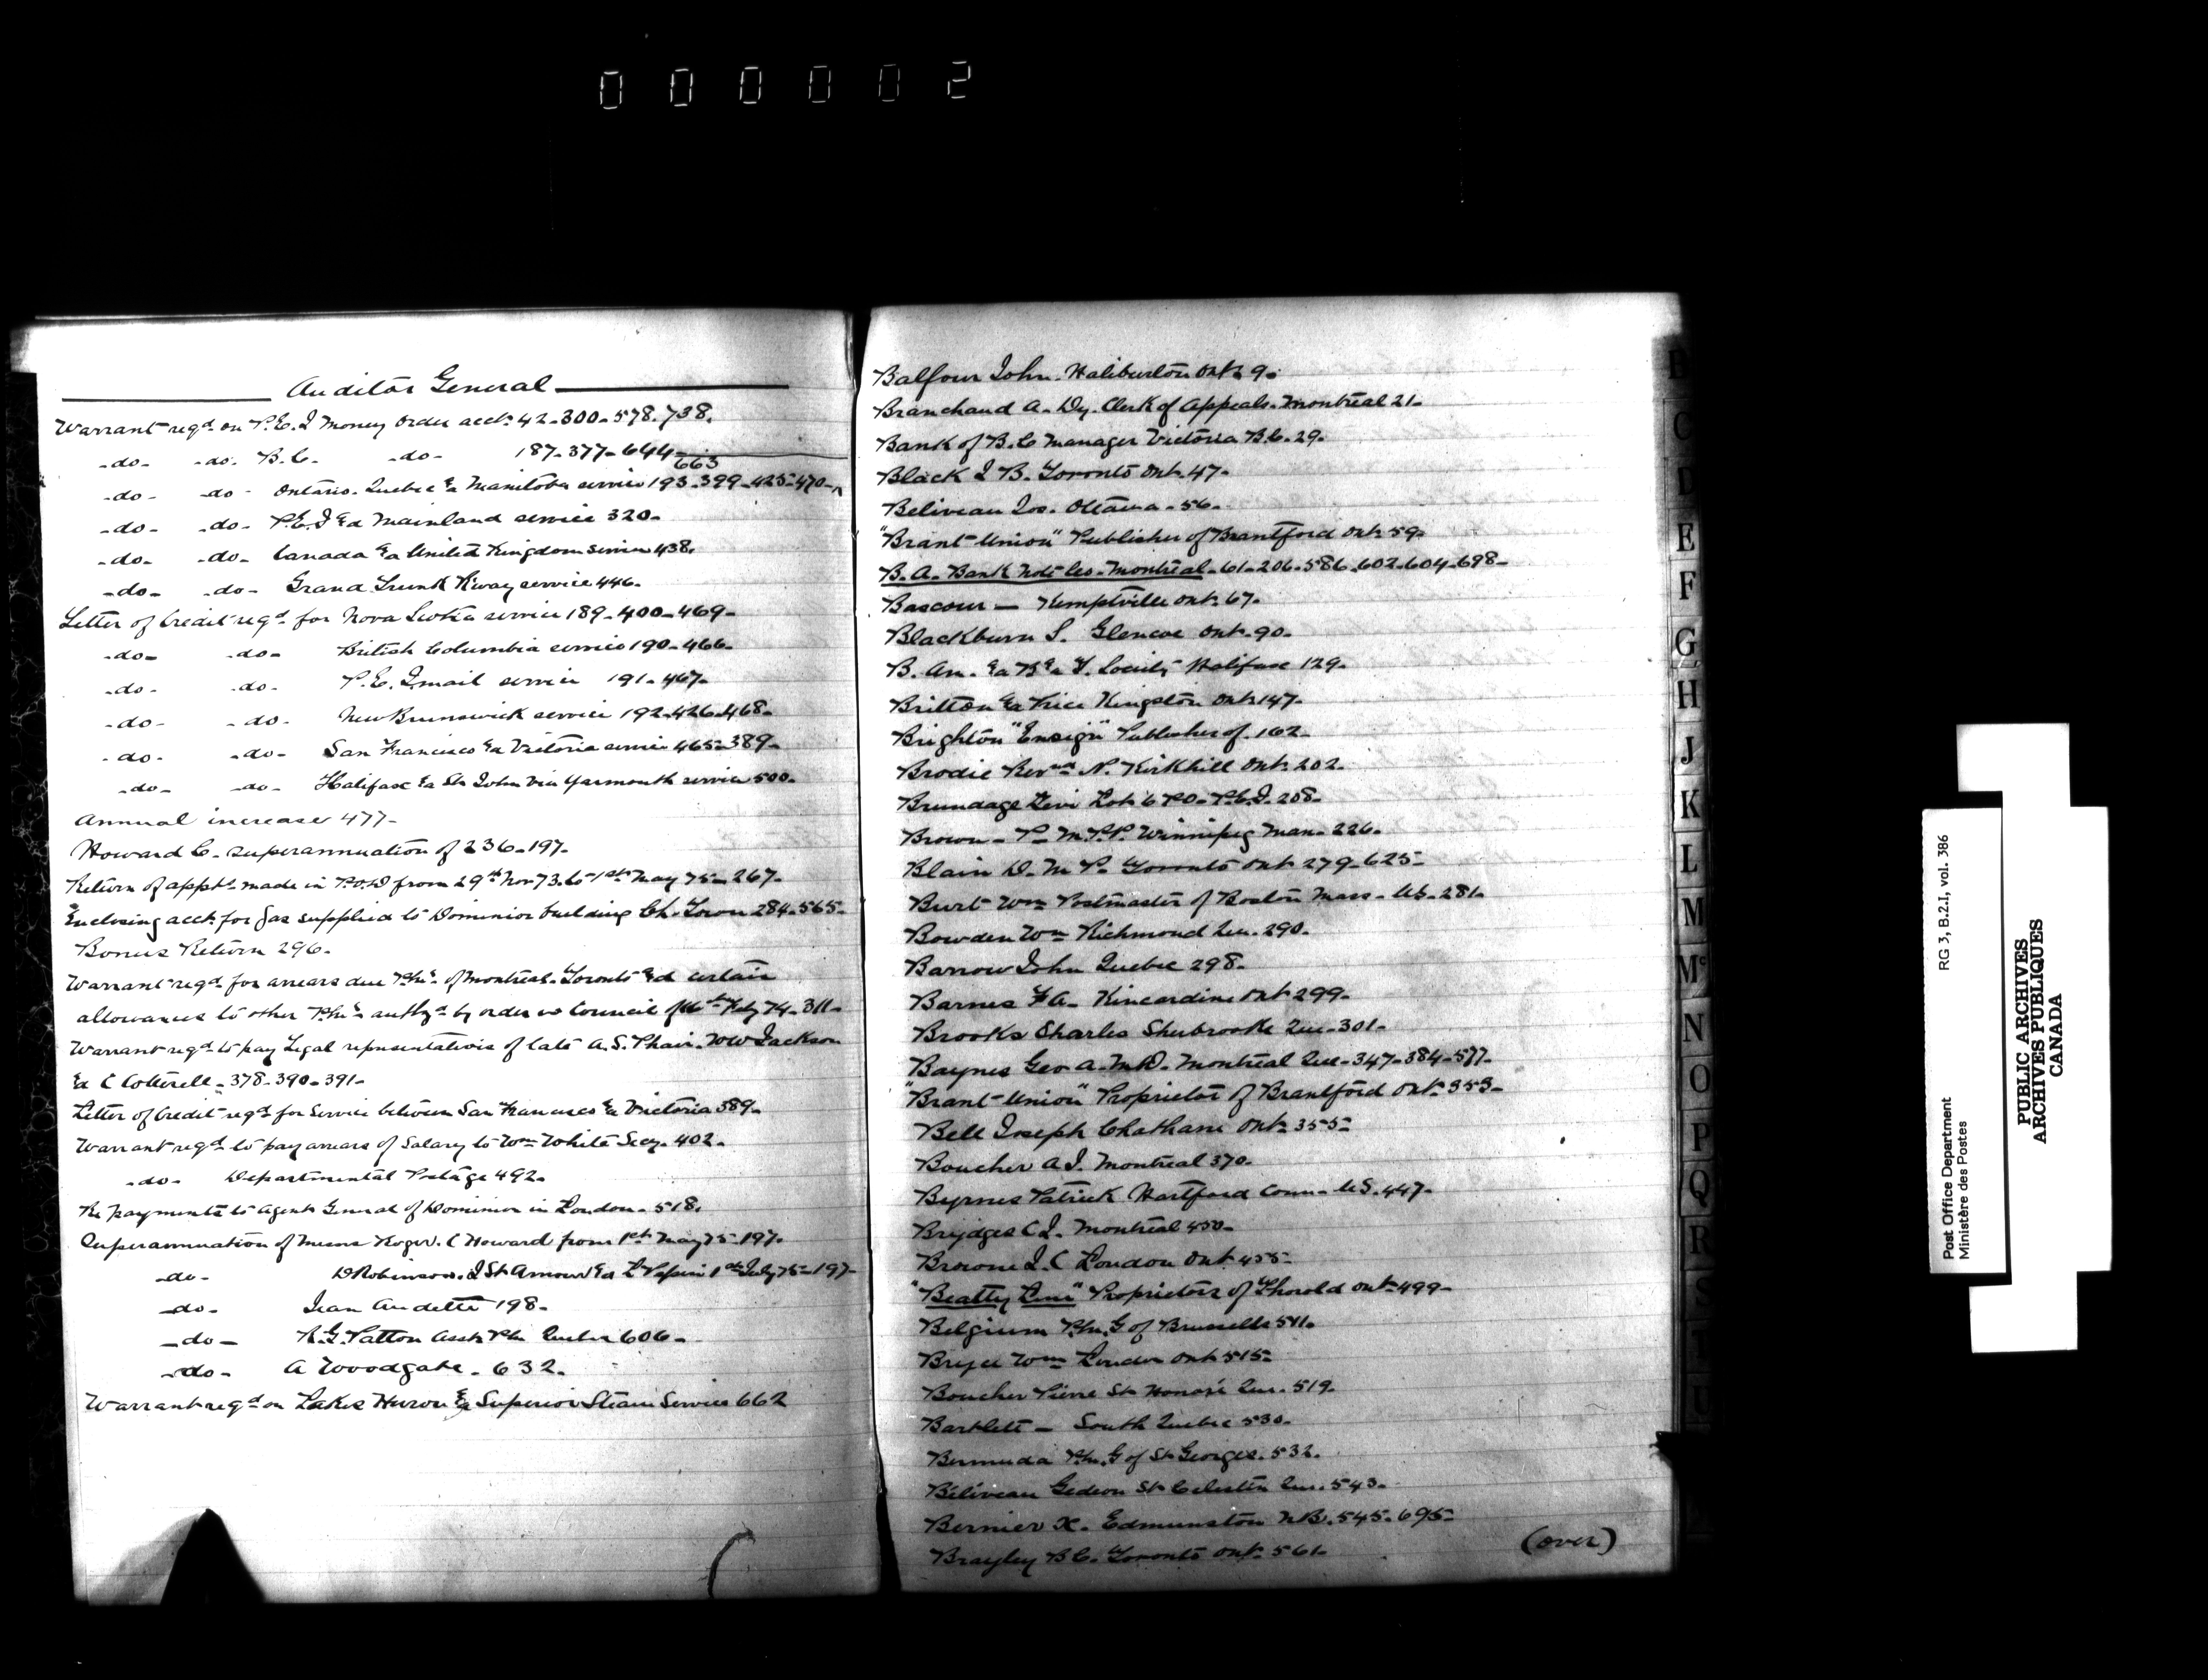 000002
Auditor General
Warrant reqd on P.E.I Money Order acct. 42-300-578.738.
-do- -do- B.C. -do- 187-377-644-
663
-do- -do- Ontario. Quebec & Manitoba service 193-399-425-470-^
-do- -do- P.E.I & Mainland service 320-
-do- -do- Canada & United Kingdom service 438.
-do- -do- Grand Trunk R'way service 446-
Letter of Credit reqd for Nova Scotia service 189-400-469-
-do- -do- British Columbia service 190-466-
-do- -do- P.E.I mail service 191-467-
-do- -do- New Brunswick service 192-426-468-
-do- -do- San Francisco & Victoria service 465-389-
-do- -do- Halifax & St John via Yarmouth service 500-
Annual increase 477-
Howard C. superannuation of 236-197-
Return of apptts made in P.O.D from 29th Nov 73 to 1st May 75-267-
Enclosing acct. for Gas supplied to Dominion building Ch. Town 284-565-
Bonus Return 296-
Warrant reqd for arrears due P.M's of Montreal. Toronto & certain
allowances to other P.M's authzd by order in Council of 16th Feby 74-311-
Warrant reqd to pay Legal representatives of late A.S. Phair. WW Jackson
& C Cotterell-378-390-391-
Letter of Credit reqd for Service between San Francisco & Victoria 389-
Warrant reqd to pay arrears of Salary to Wm White Secy. 402-
-do- Departmental Postage 492-
Re payments to Agent General of Dominion in London-518.
Superannuation of Messrs Roger. C Howard from 1st May 75-197-
-do- D Robinson. J St Amour & L Papin 1st July 75-197-
-do- Jean Audette 198-
-do- R.G. Patton Asst P.M. Quebec 606-
-do- A Woodgate-632.
Warrant reqd on Lakes Huron & Superior Steam Service 662
Balfour John. Haliburton Ont. 9.
Branchaud A. Dy. Clerk of Appeals. Montreal 21-
Bank of B.C Manager Victoria B.C. 29-
Black J B. Toronto Ont. 47-
Beliveau Jos. Ottawa-56-
"Brant-Union" Publisher of Brantford Ont. 59-
B.A. Bank Note Co-Montreal-61-206-586.602.604.698-
Bascour — Kemptville Ont. 67-
Blackburn S. Glencoe Ont. 90-
B. Am. & B & T. Society Halifax 129-
Britton & Price Kingston Ont 147-
Brighton "Ensign" Publisher of. 162-
Brodie Revnd N. Kirkhill Ont. 202-
Brundage Levi Lot 6 P.O-P.E.I. 208-
Brown-P- M.P.P. Winnipeg Man-226-
Blain D. M P. Toronto Ont 279-625-
Burt Wm Postmaster of Boston Mass-US-281-
Bowden Wm Richmond Que. 290-
Barrow John Quebec 298-
Barnes F A- Kincardine Ont 299-
Brooks Charles Sherbrooke Que-301-
Baynes Geo A. M.D. Montreal Que-347-384-577-
"Brant-Union" Proprietor of Brantford Ont. 353-
Bell Joseph Chatham Ont. 355-
Boucher A.J. Montreal 370-
Byrnes Patrick Hartford Conn-US. 447-
Brydges C J. Montreal 450-
Browne J. C London Ont 455-
"Beatty Line" Proprietors of Thorold Ont-499-
Belgium P.M.G of Brussells 511-
Bryce Wm London Ont 515-
Boucher Pierre St Honoré Que. 519-
Bartlett — South Quebec 530-
Bermuda P.M.G of St Georges. 532-
Béliveau Gedeon St Celestin Que. 543-
Bernier X. Edmunston N.B. 545-695-
Brayley B C. Toronto Ont. 561-
(over)
C
D
E
F
G
H
J
K
L
M
Mc
N
O
P
Q
R
S
U
Post Office Department RG 3, B.2.I, vol. 386
Ministère des Postes
PUBLIC ARCHIVES
ARCHIVES PUBLIQUES
CANADA